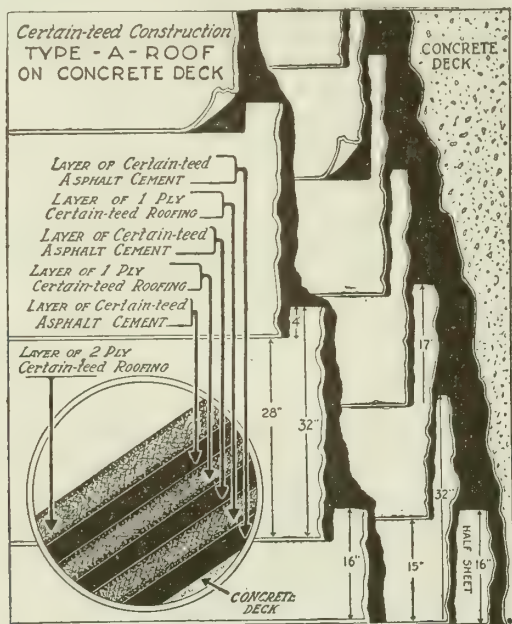 Certain-teed Construction
TYPE - A - ROOF
ON CONCRETE DECK
CONCRETE
DECK
LAYER OF Certain-teed
ASPHALT CEMENT
LAYER OF 1 PLY
Certain-teed ROOFING
LAYER OF Certain-teed
ASPHALT CEMENT
LAYER OF 1 PLY
Certain-teed ROOFING
LAYER OF Certain-teed
ASPHALT CEMENT
LAYER OF 2 PLY
Certain-teed ROOFING
4"
17"
28"
32"
32"
16"
15"
HALF SHEET
16"
CONCRETE
DECK